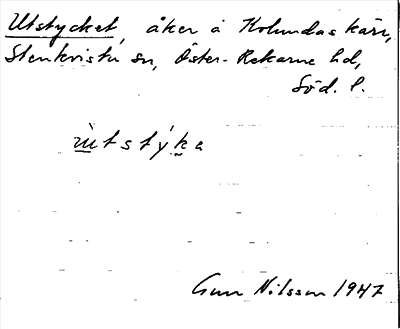 Utstycket, åker å Kolundaskärr,
Stenkvista sn, Öster-Rekarne hd,
Söd. l.
ùtstýka
Gun Nilsson 1947